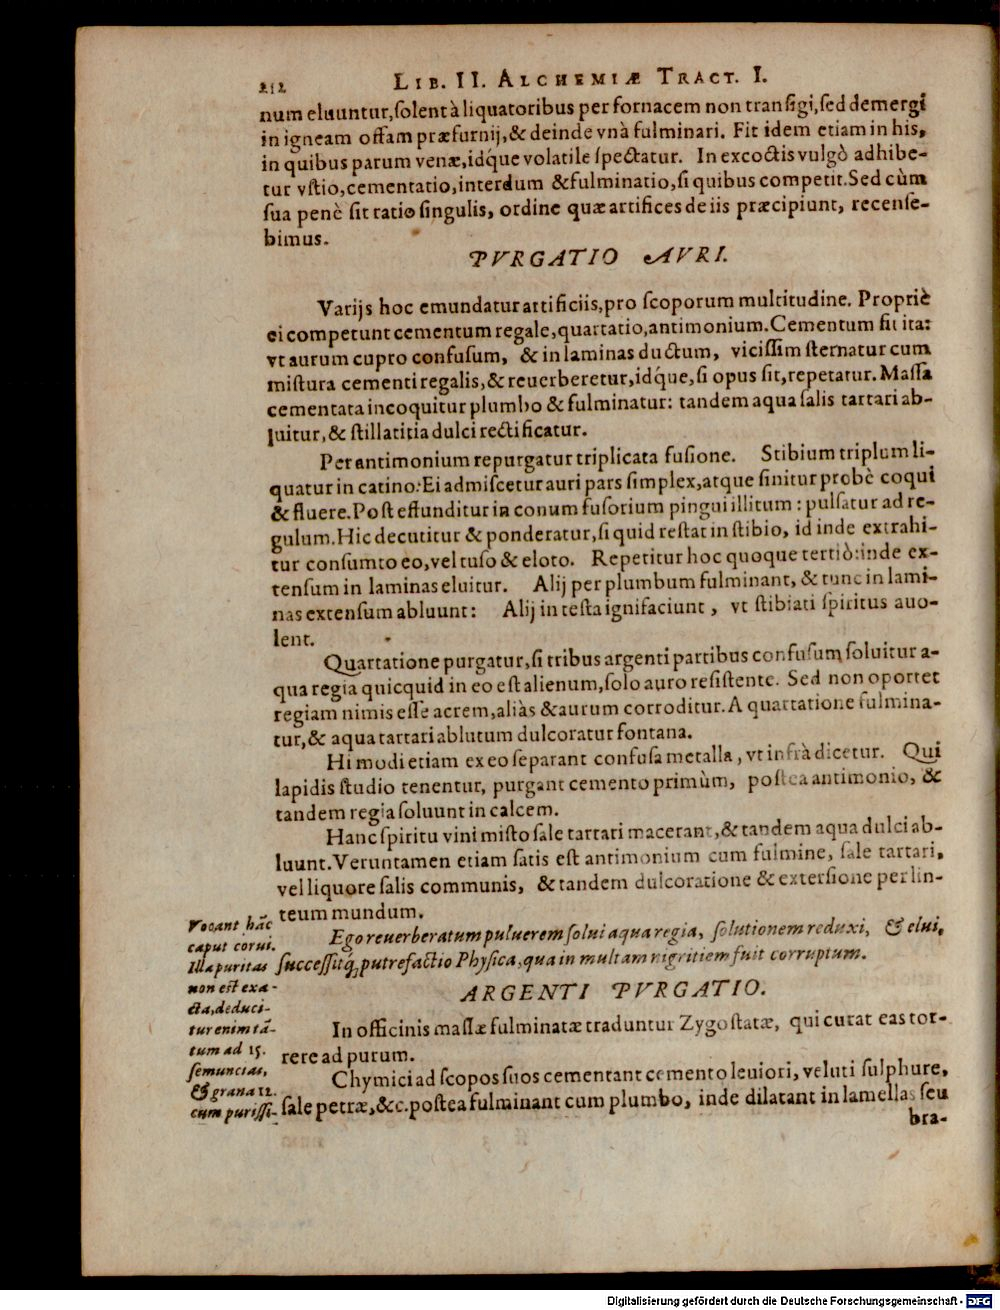 212 LIB. II. ALCHEMIÆ TRACT. I.
num eluuntur, ſolent à liquatoribus per fornacem non tranſigi, ſed demergi
in igneam offam præfurnij, & deinde vnà fulminari. Fit idem etiam in his,
in quibus parum venæ, idq́ue volatile ſpectatur. In excoctis vulgò adhibe-
tur vſtio, cementatio, interdum & fulminatio, ſi quibus competit. Sed cùm
ſua penè ſit ratio ſingulis, ordine quæ artifices de iis præcipiunt, recenſe-
bimus.
PVRGATIO AVRI.
Varijs hoc emundatur artificiis, pro ſcoporum multitudine. Propriè
ei competunt cementum regale, quartatio, antimonium. Cementum fit ita:
vt aurum cupro confuſum, & in laminas ductum, viciſſim ſternatur cum
miſtura cementi regalis, & reuerberetur, idq́ue, ſi opus ſit, repetatur. Maſſa
cementata incoquitur plumbo & fulminatur: tandem aqua ſalis tartari ab-
luitur, & ſtillatitia dulci rectificatur.
Per antimonium repurgatur triplicata fuſione. Stibium triplum li-
quatur in catino: Ei admiſcetur auri pars ſimplex, atque ſinitur probè coqui
& fluere. Poſt effunditur in conum fuſorium pingui illitum: pulſatur ad re-
gulum. Hic decutitur & ponderatur, ſi quid reſtat in ſtibio, id inde extrahi-
tur conſumto eo, vel tuſo & eloto. Repetitur hoc quoque tertiò: inde ex-
tenſum in laminas eluitur. Alij per plumbum fulminant, & tunc in lami-
nas extenſum abluunt: Alij in teſta ignifaciunt, vt ſtibiati ſpiritus auo-
lent.
Quartatione purgatur, ſi tribus argenti partibus confuſum ſoluitur a-
qua regia quicquid in eo eſt alienum, ſolo auro reſiſtente. Sed non oportet
regiam nimis eſſe acrem, aliàs & aurum corroditur. A quartatione fulmina-
tur, & aqua tartari ablutum dulcoratur fontana.
Hi modi etiam ex eo ſeparant confuſa metalla, vt infrà dicetur. Qui
lapidis ſtudio tenentur, purgant cemento primùm, poſtea antimonio, &
tandem regia ſoluunt in calcem.
Hanc ſpiritu vini miſto ſale tartari macerant, & tandem aqua dulci ab-
luunt. Veruntamen etiam ſatis eſt antimonium cum fulmine, ſale tartari,
vel liquore ſalis communis, & tandem dulcoratione & exterſione per lin-
teum mundum.
Ego reuerberatum puluerem ſolui aqua regia, ſolutionem reduxi, & elui,
ſucceſſitq́; putrefactio Phyſica, qua in multam nigritiem fuit corruptum.
Vocant hãc
caput corui.
Illa puritas
non eſt exa-
cta, deduci-
tur enim tã-
tum ad 15.
ſemuncias,
& grana 12.
cum puriſſi-
ARGENTI PVRGATIO.
In officinis maſſæ fulminatæ traduntur Zygoſtatæ, qui curat eas tor-
rere ad purum.
Chymici ad ſcopos ſuos cementant cemento leuiori, veluti ſulphure,
ſale petræ, &c. poſtea fulminant cum plumbo, inde dilatant in lamellas ſeu
bra-
Digitalisierung gefördert durch die Deutsche Forschungsgemeinschaft - DFG